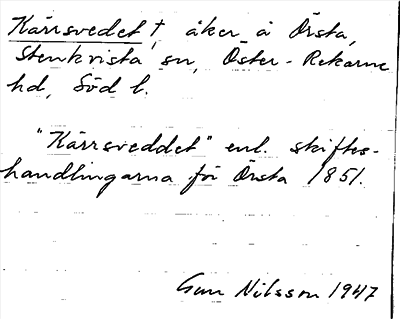 Kärrsvedet †, åker å Örsta,
Stenkvista sn, Öster-Rekarne
hd, Söd l.
"Kärrsveddet" enl. skiftes-
handlingarna för Örsta 1851.
Gun Nilsson 1947